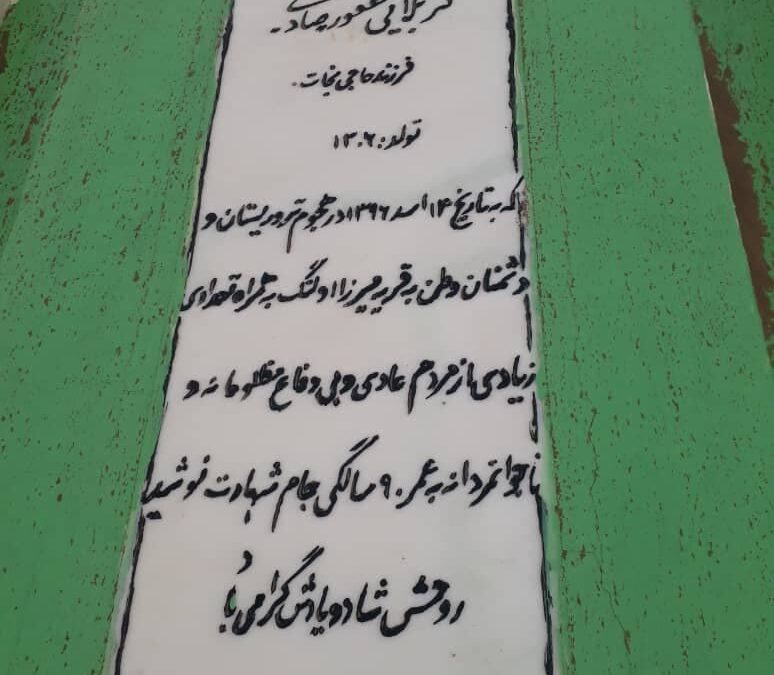 کربلایی غفور صادق
فرزند حاجی نجات.
تولد: ۱۳۰۶
که به تاریخ ۱۴ اسد ۱۳۹۶ در هجوم تروریستان و
دشمنان وطن به قریه میرزا اولنگ به همراه تعدادی
زیادی از مردم عادی و بی دفاع مظلومانه و
ناجوانمردانه به عمر ۹۰ سالگی جام شهادت نوشید
روحش شاد و یادش گرامی باد